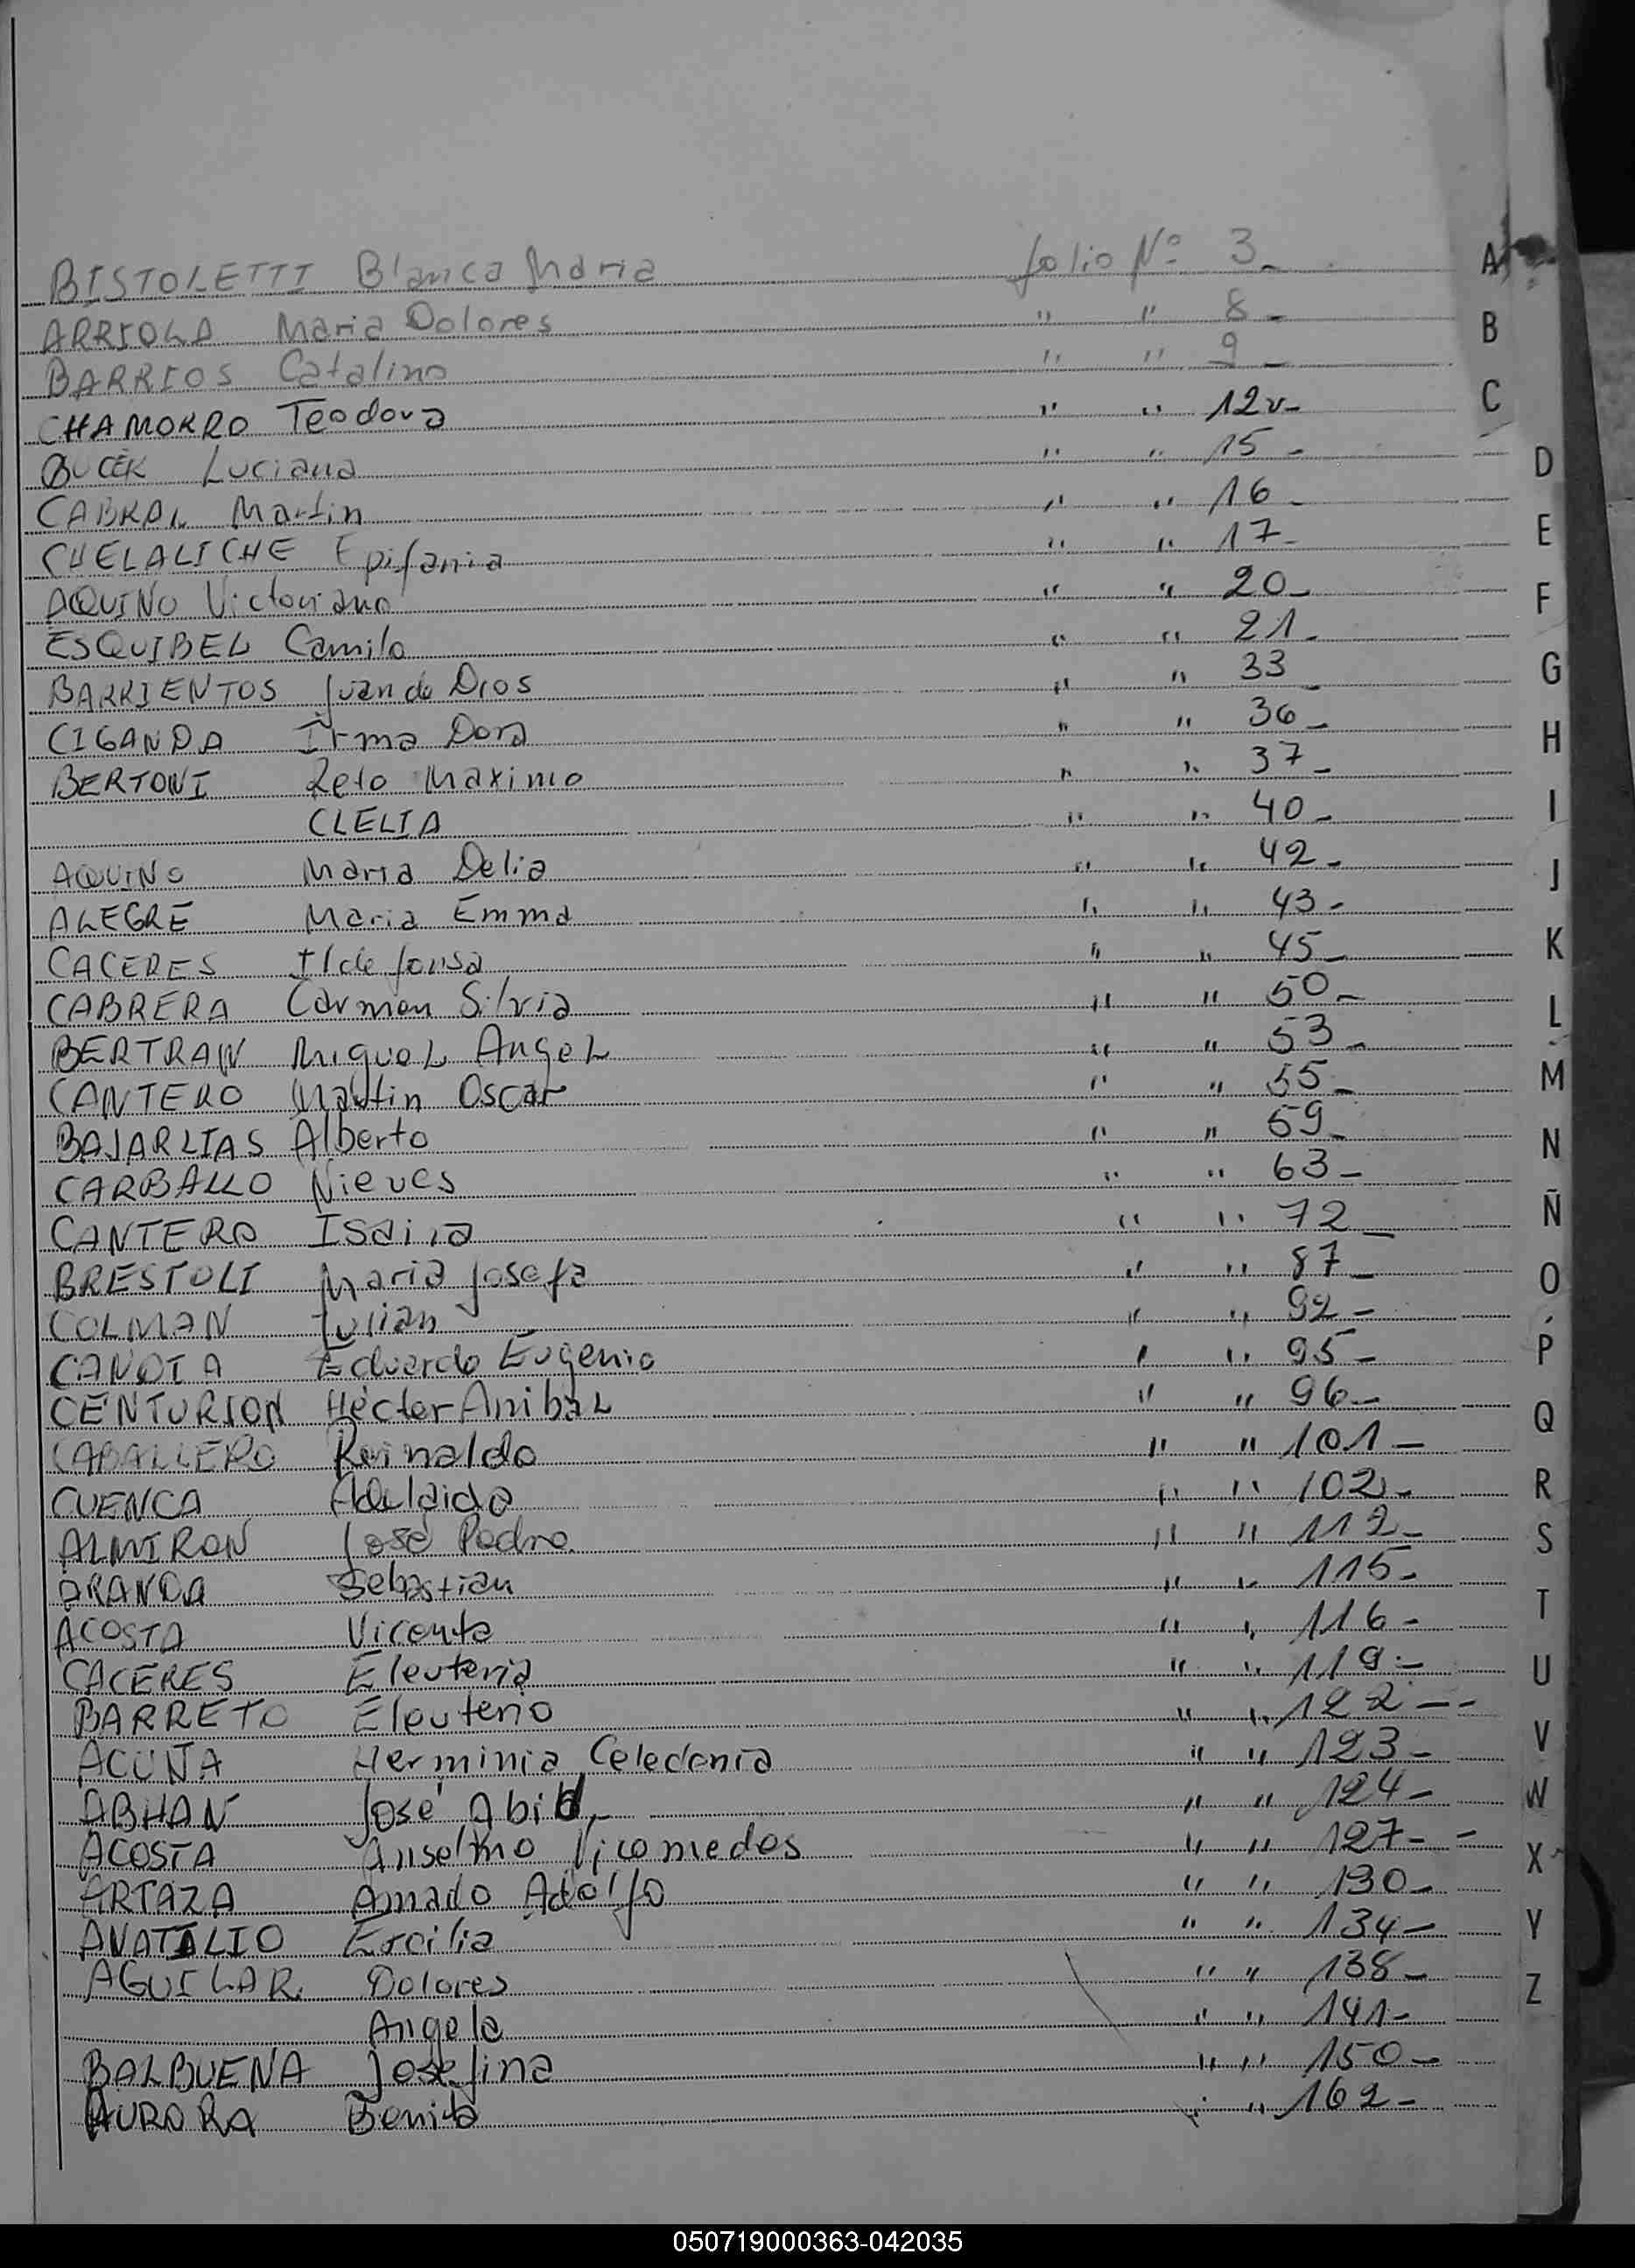 BISTOLETTI Blanca Maria folio Nº 3_ A
ARRIOLA Maria Dolores " " 8_ B
BARRIOS Catalino " " 9_
CHAMORRO Teodora " " 12v_ C
BUCEK Luciana " " 15_ D
CABRAL Martin " " 16_
CHELALICHE Epifania " " 17_ E
AQUINO Victoriano " " 20_ F
ESQUIBEL Camilo " " 21_
BARRIENTOS Juan de Dios " " 33_ G
CIGANDA Irma Dora " " 36_ H
BERTONI Reto Maximo " " 37_
CLELIA " " 40_ I
AQUINO Maria Delia " " 42_ J
ALEGRE Maria Emma " " 43_
CACERES Ildefonsa " " 45_ K
CABRERA Carmen Silvia " " 50_ L
BERTRAN Miguel Angel " " 53_
CANTERO Martin Oscar " " 55_ M
BAJARLIAS Alberto " " 59_ N
CARBALLO Nieves " " 63_
CANTERO Isaira " " 72_ Ñ
BRESTOLI Maria Josefa " " 87_ O
COLMAN Julian " " 92_
CANDIA Eduardo Eugenio " " 95_ P
CENTURION Héctor Anibal " " 96_ Q
CABALLERO Reinaldo " " 101_
CUENCA Adelaida " " 102_ R
ALMIRON José Pedro " " 112_ S
ARANDA Sebastian " " 115_
ACOSTA Vicente " " 116_ T
CACERES Eleuteria " " 119_ U
BARRETO Eleuterio " " 122_ _
ACUÑA Herminia Celedonia " " 123_ V
ABHAN José Abid_ " " 124_ W
ACOSTA Anselmo Nicomedes " " 127_ _ X
ARTAZA Amado Adolfo " " 130_
ANATILIO Ercilia " " 134_ Y
AGUILAR Dolores " " 138_ Z
Angela " " 141_
BALBUENA Josefina " " 150_
AURORA Benita " " 162_
050719000363-042035